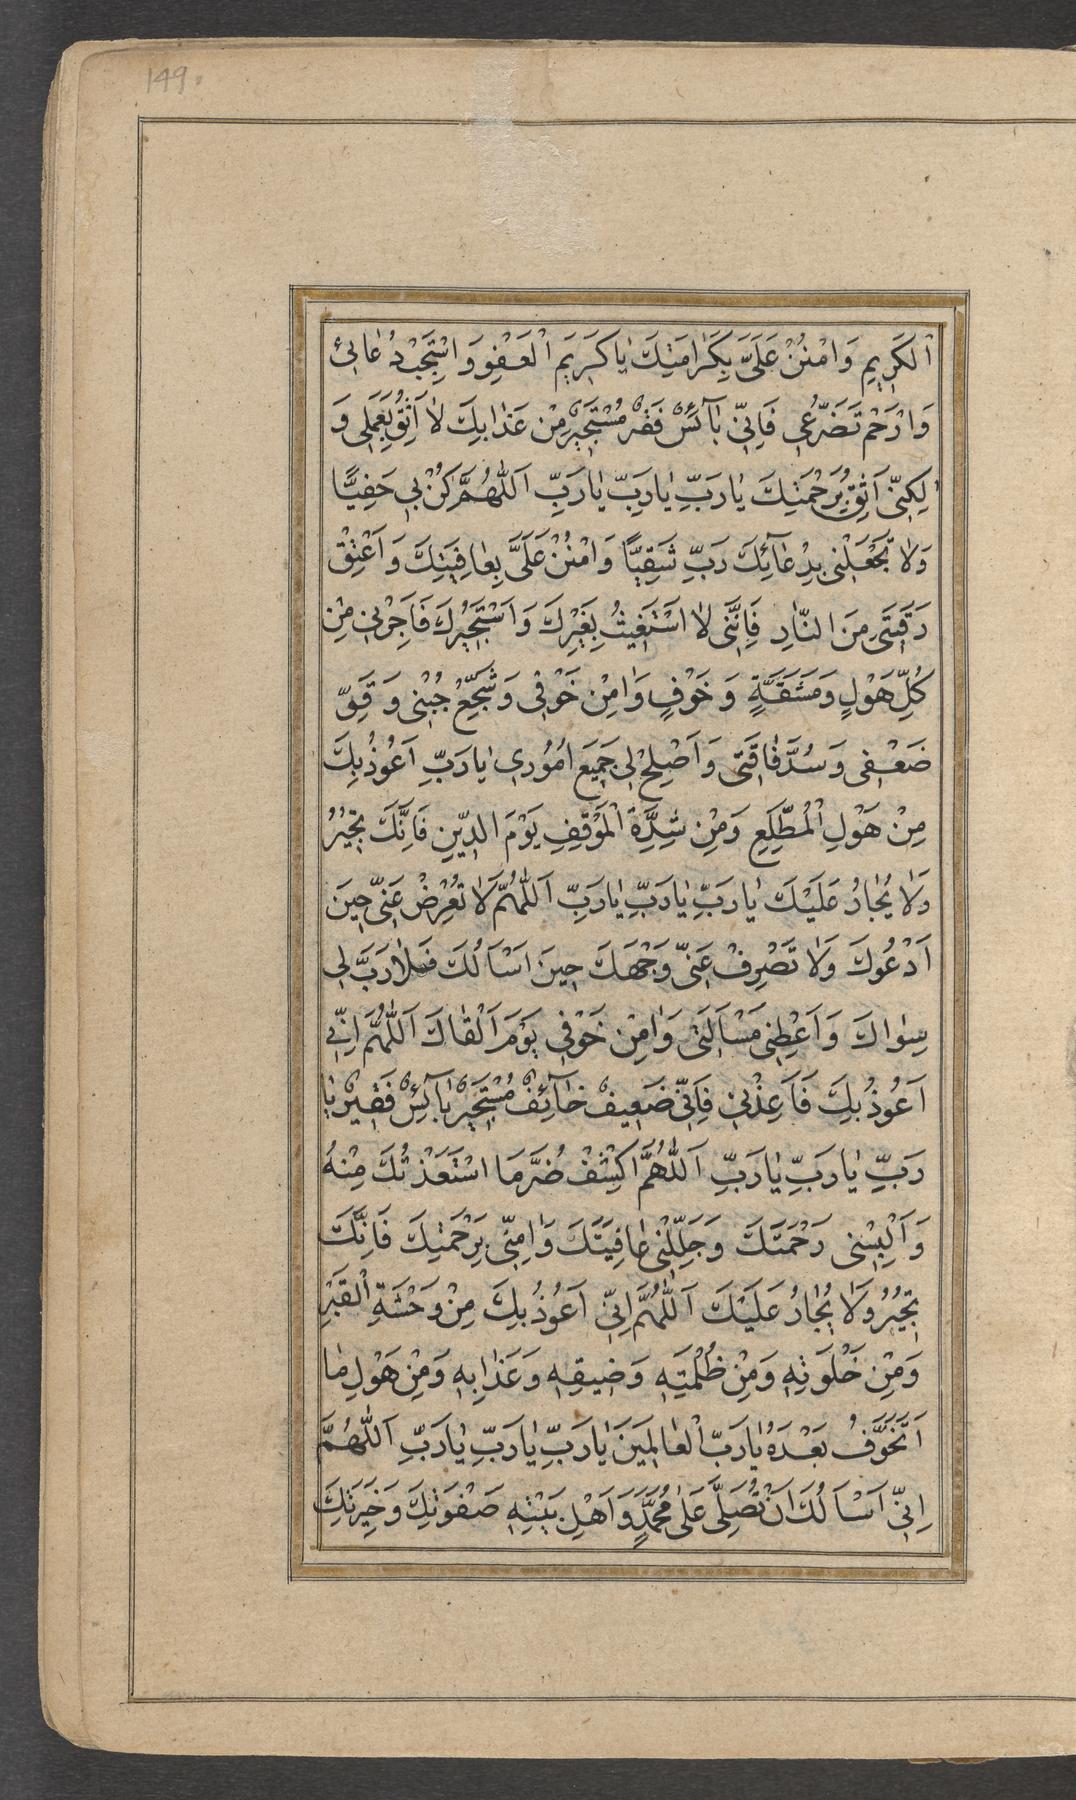 149
الْكَرِيمِ وَامْنُنْ عَلَيَّ بِكَرَامَتِكَ يَا كَرِيمَ الْعَفْوِ وَاسْتَجِبْ دُعَائِي
وَارْحَمْ تَضَرُّعِي فَاِنّي بَآئِسٌ فَقرٌ مُسْتَجِيرٌ مِنْ عَذَابِكَ لَا اَثِقُ بِعَمَلِي وَ
لكِنّي اَثِقُ بِرَحْمَتِكَ يَا رَبِّ يَا رَبِّ يَا رَبِّ اَللّهُمَّ كُنْ بِي حَفِيًّا
وَلَا تَجْعَلْنِي بِدُعَآئِكَ رَبِّ شَقِيًّا وَامْنُنْ عَلَيَّ بِعَافِيَتِكَ وَاَعْتِقْ
رَقَبَتِي مِنَ النَّارِ فَاِنَّنِي لَا اَسْتَغِيثُ بِغَيْرِكَ وَاَسْتَجِيرُكَ فَاَجِرْنِي مِنْ
كُلِّ هَوْلٍ وَمَشَقَّةٍ وَخَوْفٍ وَامِنْ خَوْفِي وَشَجِّعْ جُبْنِي وَقَوِّ
ضَعْفِي وَسُدَّ فَاقَتِي وَاَصْلِحْ لِي جَمِيعَ اُمُورِي يَا رَبِّ اَعُوذُ بِكَ
مِنْ هَوْلِ الْمُطَّلَعِ وَمِنْ شِدَّةِ الْمَوْقِفِ يَوْمَ الدِّينِ فَاِنَّكَ تُجِيرُ
وَلَا يُجَارُ عَلَيْكَ يَا رَبِّ يَا رَبِّ يَا رَبِّ اَللّهُمَّ لَا تُعْرِضْ عَنّي حِينَ
اَدْعُوكَ وَلَا تَصْرِفْ عَنّي وَجْهَكَ حِينَ اَسْاَلُكَ فَلَا رَبَّ لِي
سِوَاكَ وَاَعْطِنِي مَسْاَلَتِي وَامِنْ خَوْفِي يَوْمَ اَلْقَاكَ اَللّهُمَّ اِنّي
اَعُوذُ بِكَ فَاَعِذْنِي فَاِنّي ضَعِيفٌ خَآئِفٌ مُسْتَجِيرٌ بَآئِسٌ فَقِيرٌ يَا
رَبِّ يَا رَبِّ يَا رَبِّ اَللّهُمَّ اكْشِفْ ضُرَّ مَا اسْتَعَذْتُكَ مِنْهُ
وَاَلْبِسْنِي رَحْمَتَكَ وَجَلِّلْنِي عَافِيَتَكَ وَامِنّي بِرَحْمَتِكَ فَاِنَّكَ
تُجِيرُ وَلَا يُجَارُ عَلَيْكَ اَللّهُمَّ اِنّي اَعُوذُ بِكَ مِنْ وَحْشَةِ الْقَبْرِ
وَمِنْ خَلْوَتِهِ وَمِنْ ظُلْمَتِهِ وَضِيقِهِ وَعَذَابِهِ وَمِنْ هَوْلِ مَا
اَتَخَوَّفُ بَعْدَهُ يَا رَبَّ الْعَالَمِينَ يَا رَبِّ يَا رَبِّ يَا رَبِّ اَللّهُمَّ
اِنّي اَسْاَلُكَ اَنْ تُصَلِّيَ عَلَى مُحَمَّدٍ وَاَهْلِ بَيْتِهِ صَفْوَتِكَ وَخِيَرَتِكَ